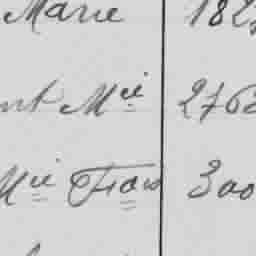 Marie 182
nt Mie 276
Mie Fçois 300